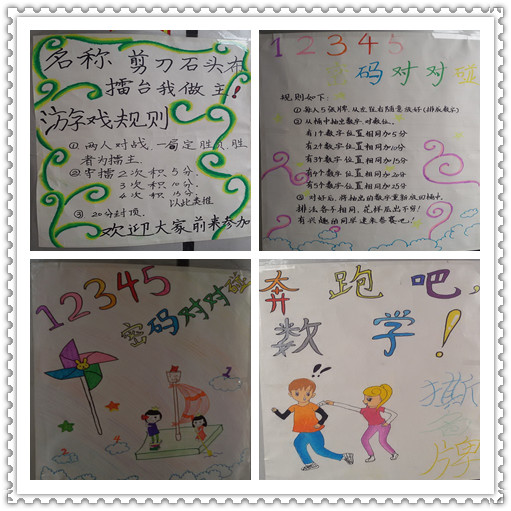 名称 剪刀石头布
擂台我做主!
游戏规则
①两人对战,一局定胜负,胜
者为擂主.
②守擂2次积5分.
3次积10分.
4次积15分.
以此类推
③20分封顶.
欢迎大家前来参加
12345
码对对碰
规则如下:
①每人5张牌,从左往右随意放好(排成数字)
②从桶中抽完数字,对数位。
有1个数字位置相同加5分
有2个数字位置相同加10分
有3个数字位置相同加15分
有4个数字位置相同加20分
有5个数字位置相同加25分
③对好后,将抽出的数字重新放回桶中.
排法各不相同,花样层出不穷!
有兴趣的同学速来参赛吧!
12345
密码对对碰
奔跑吧,
数学!
撕
牌